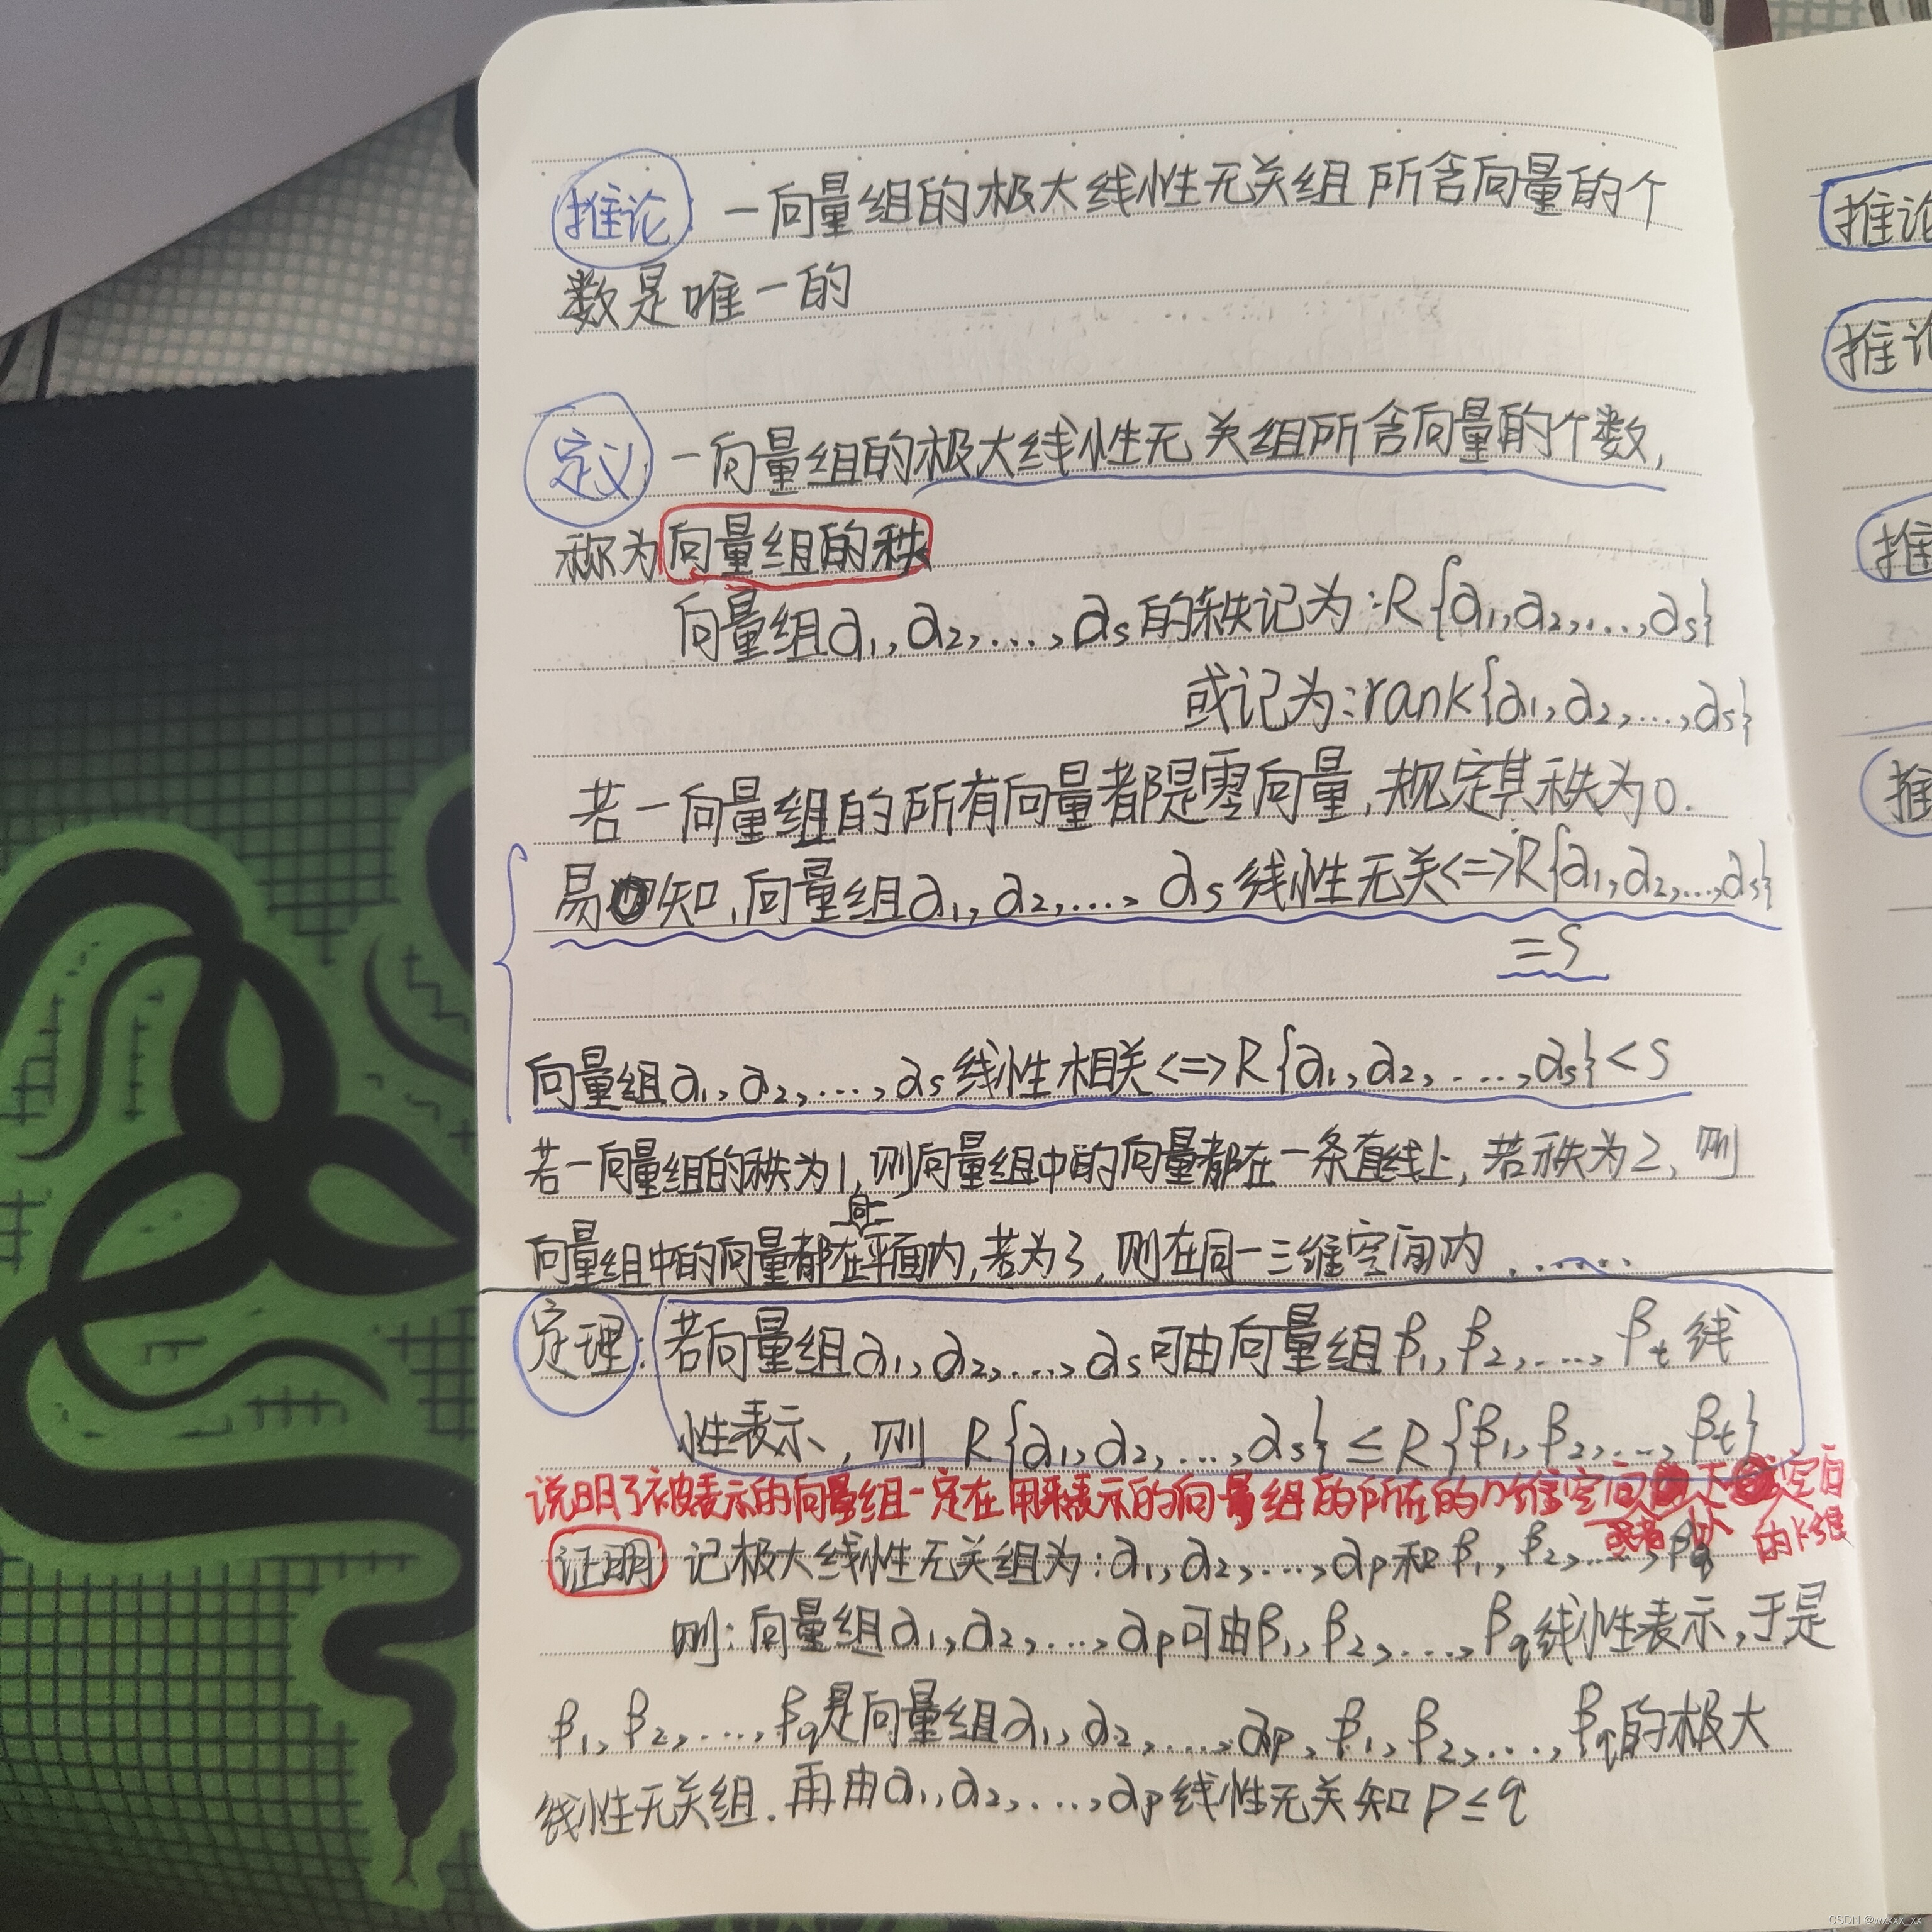 推论 一向量组的极大线性无关组所含向量的个
数是唯一的
定义 一向量组的极大线性无关组所含向量的个数,
称为向量组的秩
向量组α₁,α₂,...,αₛ的秩记为:R{α₁,α₂,...,αₛ}
或记为:rank{α₁,α₂,...,αₛ}
若一向量组的所有向量都是零向量,规定其秩为0.
易知,向量组α₁,α₂,...,αₛ线性无关<=>R{α₁,α₂,...,αₛ}
=S
向量组α₁,α₂,...,αₛ线性相关<=>R{α₁,α₂,...,αₛ}<S
若一向量组的秩为1,则向量组中的向量都在一条直线上,若秩为2,则
向量组中的向量都在同一平面内,若为3,则在同一三维空间内......
定理:若向量组α₁,α₂,...,αₛ可由向量组β₁,β₂,...,βₜ线
性表示,则R{α₁,α₂,...,αₛ}≤R{β₁,β₂,...,βₜ}
说明了被表示的向量组一定在用来表示的向量组的所在的n维空间
或者
空间
证明 记极大线性无关组为:α₁,α₂,...,αp和β₁,β₂,...,βq
则:向量组α₁,α₂,...,αp可由β₁,β₂,...,βq线性表示,于是
β₁,β₂,...,βq是向量组α₁,α₂,...,αp,β₁,β₂,...,βq的极大
线性无关组.再由α₁,α₂,...,αp线性无关知P≤q
推论
推论
推
推
CSDN @wxxxx_xx